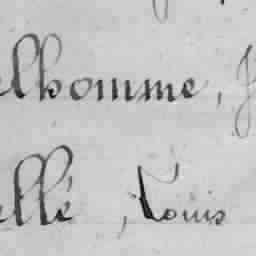 elhomme,
ellé, Louis